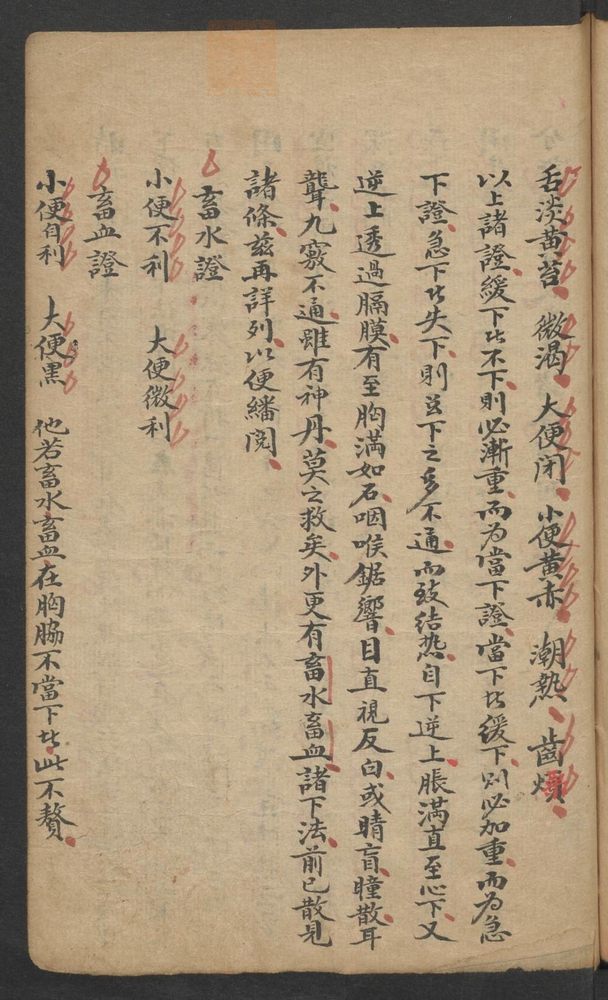 舌淡黃苔 微渴 大便閉 小便黃赤 潮熱 齒燥
以上諸證緩下者不下則必漸重而為當下證當下者緩下則必加重而為急
下證急下者失下則下之多不通而致結熱自下逆上脹滿直至心下又
逆上透過膈膜有至胸滿如石咽喉鋸響目直視反白或睛盲瞳散耳
聾九竅不通雖有神丹莫之救矣外更有畜水畜血諸下法前已散見
諸條茲再詳列以便繙閱
畜水證
小便不利 大便微利
畜血證
小便自利 大便黑 他若畜水畜血在胸脇不當下者此不贅